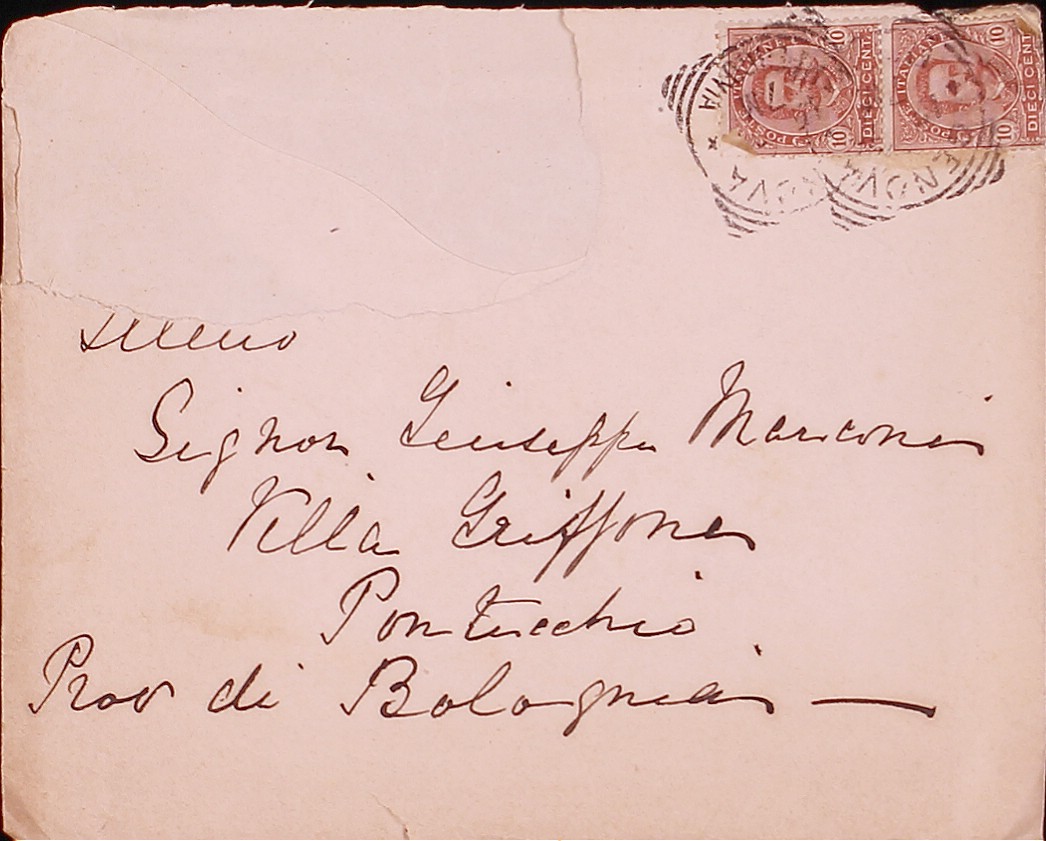 POSTE ITALIANE 10 10 DIECI CENT.
POSTE ITALIANE 10 10 DIECI CENT
Signor Giuseppe Marconi
Villa Griffone
Pontecchio
Prov di Bologna —